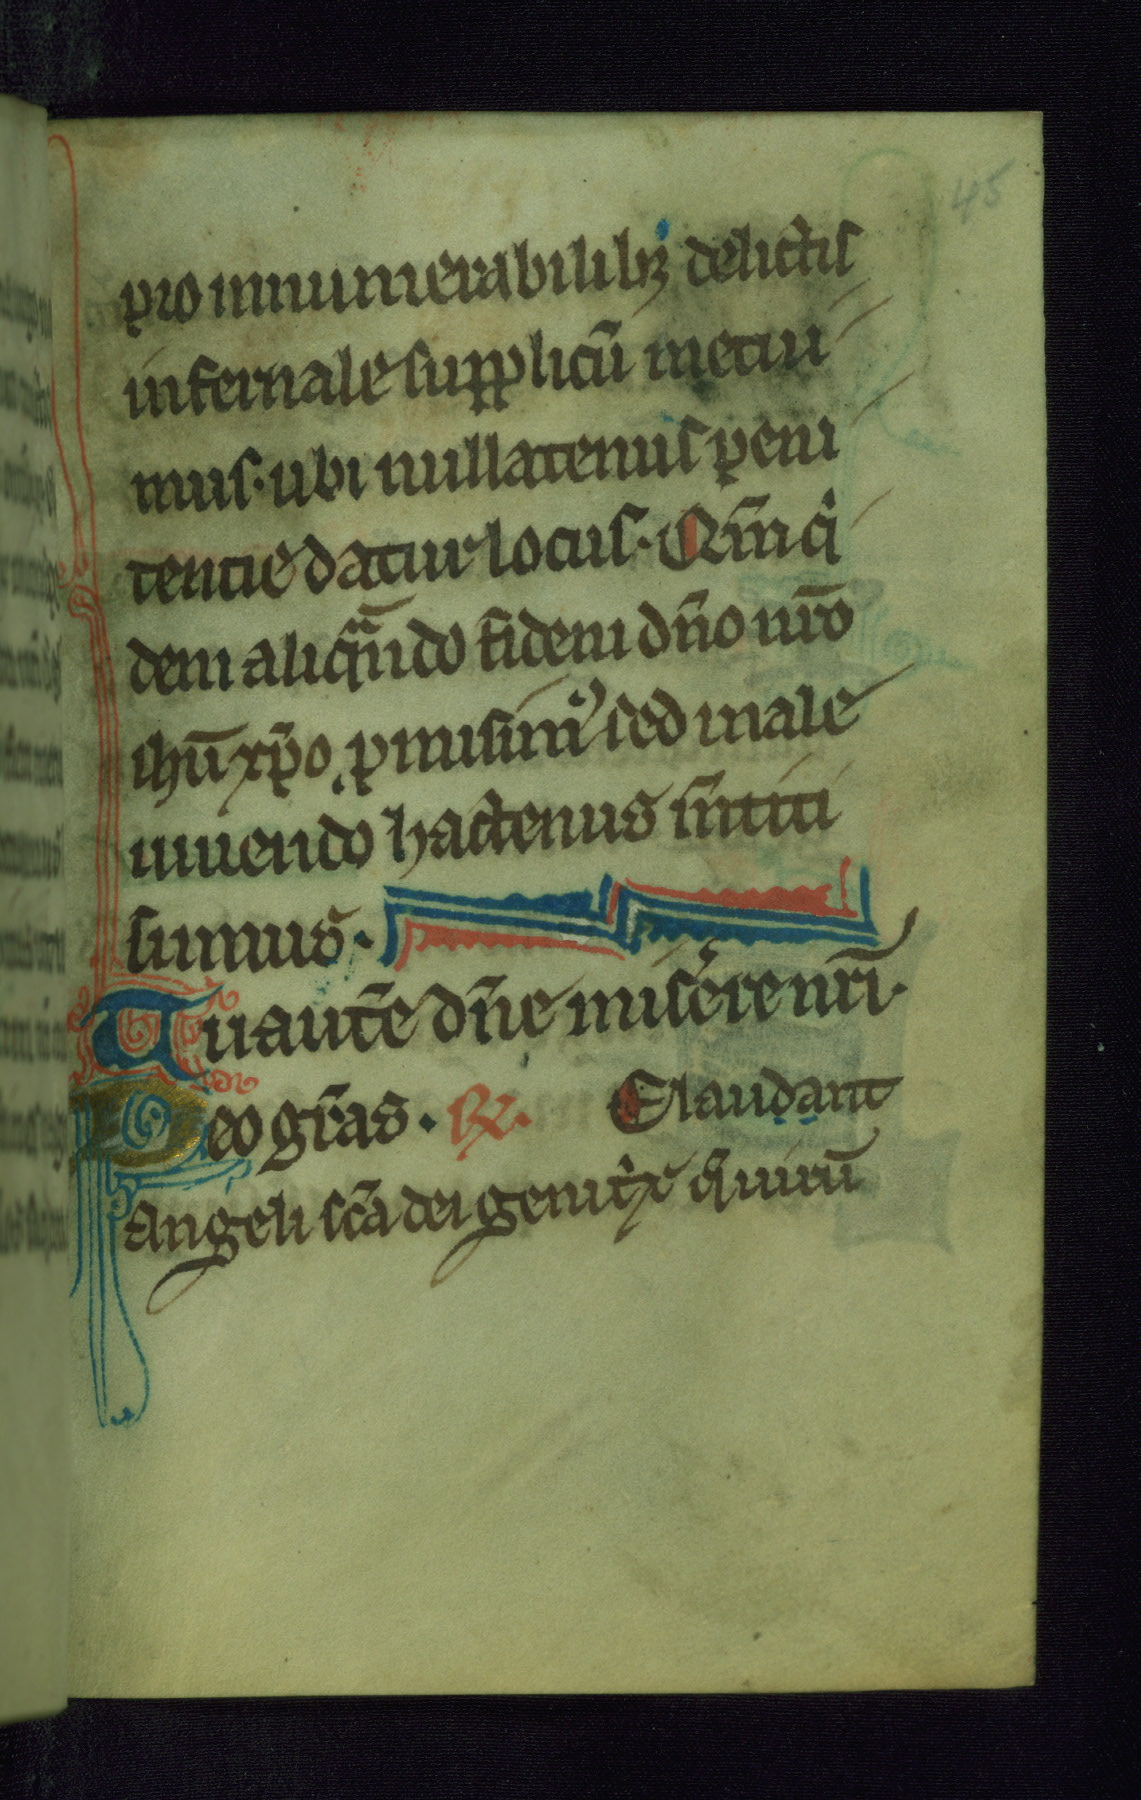 45
pro innumerabilibꝫ delictis
infernale suppliciū metiu
mus· ubi nullatenus peni
tencie datur locus· Qm̄ qͥ
dem aliqͣn̄do fidem dn̄o nr̄o
ihū xp̄o ꝓmisimꝰ sed male
uiuendo hactenus m̄titi
sumus·
Tu autē dn̄e misẽre nr̄i·
Deo gr̄as· ℟. Elaudant
angeli sc̄a dei genitͥx q̄ uirū